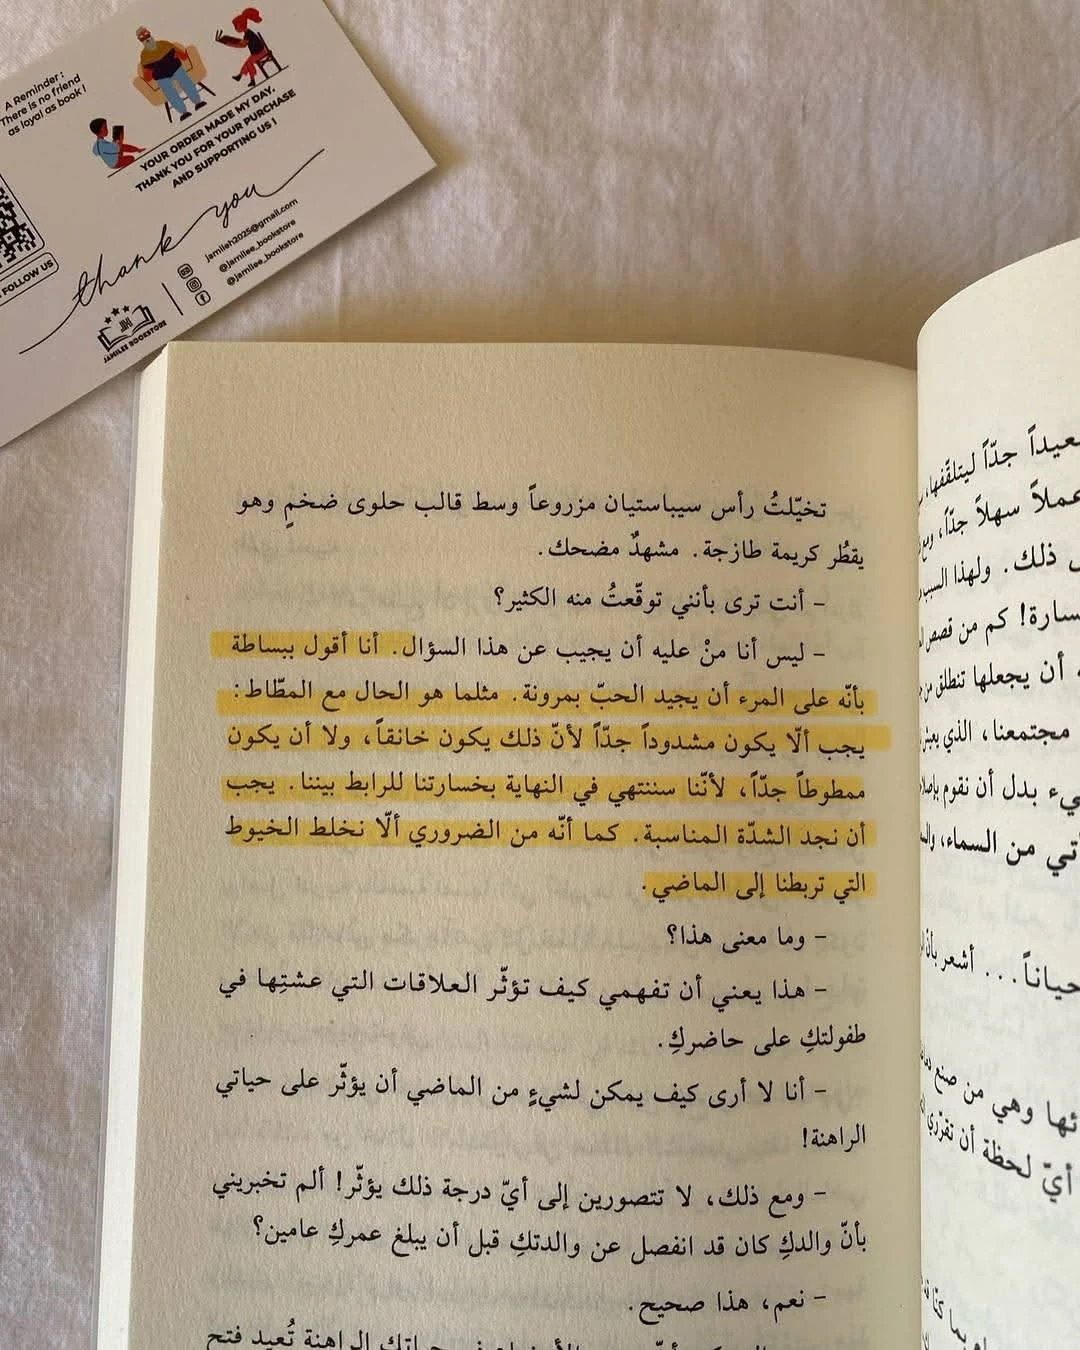 A Reminder :
There is no friend
as loyal as book !
YOUR ORDER MADE MY DAY,
THANK YOU FOR YOUR PURCHASE
AND SUPPORTING US !
thank you
FOLLOW US
jamileh2025@gmail.com
@jamilee_bookstore
@jamilee_bookstore
JAMILEE BOOKSTORE
تخيّلتُ رأس سيباستيان مزروعاً وسط قالب حلوى ضخمٍ وهو
يقطُر كريمة طازجة. مشهدٌ مضحك.
– أنت ترى بأنني توقّعتُ منه الكثير؟
– ليس أنا منْ عليه أن يجيب عن هذا السؤال. أنا أقول ببساطة
بأنّه على المرء أن يجيد الحبّ بمرونة. مثلما هو الحال مع المطّاط:
يجب ألّا يكون مشدوداً جدّاً لأنّ ذلك يكون خانقاً، ولا أن يكون
ممطوطاً جدّاً، لأنّنا سننتهي في النهاية بخسارتنا للرابط بيننا. يجب
أن نجد الشدّة المناسبة. كما أنّه من الضروري ألّا نخلط الخيوط
التي تربطنا إلى الماضي.
– وما معنى هذا؟
– هذا يعني أن تفهمي كيف تؤثّر العلاقات التي عشتِها في
طفولتكِ على حاضركِ.
– أنا لا أرى كيف يمكن لشيءٍ من الماضي أن يؤثّر على حياتي
الراهنة!
– ومع ذلك، لا تتصورين إلى أيّ درجة ذلك يؤثّر! ألم تخبريني
بأنّ والدكِ كان قد انفصل عن والدتكِ قبل أن يبلغ عمركِ عامين؟
– نعم، هذا صحيح.
الراهنة تُعيد فتح
جدّاً ليتلقّفها،
سهلاً جدّاً،
ذلك. ولهذا السبب
كم من قصص
أن يجعلها تنطلق من
مجتمعنا، الذي يعيش
بدل أن نقوم
من السماء،
... أشعر بأنّ
وهي من صنع
أيّ لحظة أن تقرّري